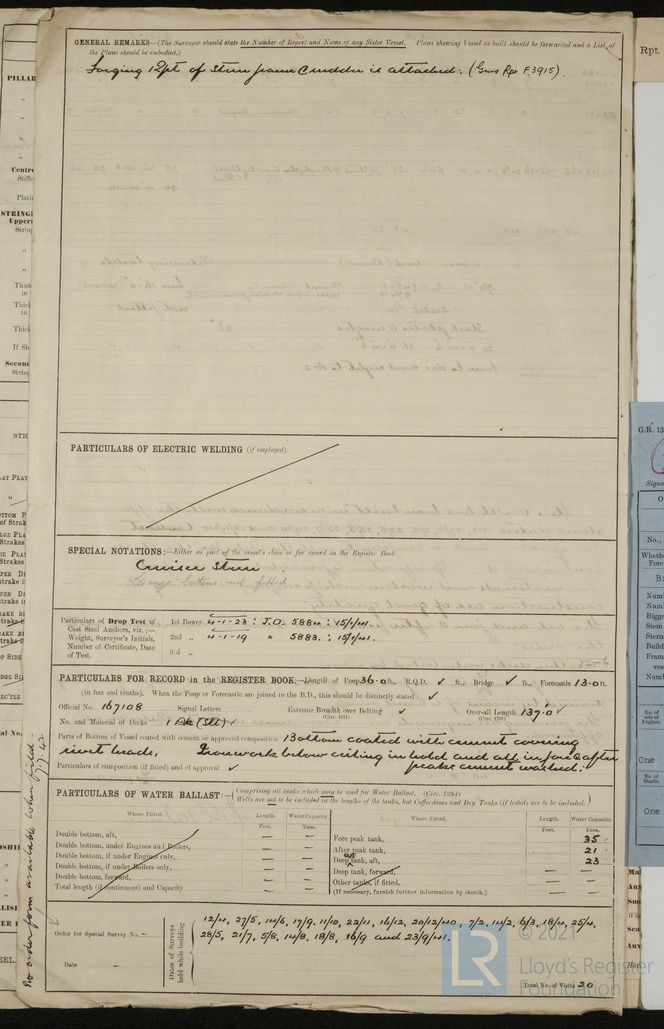 GENERAL REMARKS—(The Surveyor should state the Number of Report and Name of any Sister Vessel. Plans showing Vessel as built should be forwarded and a List of
the Plans should be embodied.)
Forging Rpt of Stern frame & rudder is attached. (Grns Rpt F.3915).
PARTICULARS OF ELECTRIC WELDING (if employed)
SPECIAL NOTATIONS:—Either as part of the vessel's class or for record in the Register Book
Cruiser Stern
Cargo battens not fitted
Particulars of Drop Test of
Cast Steel Anchors, viz.:—
Weight, Surveyor's Initials,
Number of Certificate, Date
of Test.
1st Bower 4-1-23 : J.O. 5884 : 15/1/41.
2nd „ 4-1-19 „ 5883. : 15/1/41.
3rd „
PARTICULARS FOR RECORD in the REGISTER BOOK.—Length of Poop 36.0 ft., R.Q.D. ✓ ft., Bridge ✓ ft., Forecastle 13.0 ft.
(in feet and tenths). When the Poop or Forecastle are joined to the B.D., this should be distinctly stated ✓
Official No. 167108 Signal Letters Extreme Breadth over Belting ✓ Over-all Length 137.0 ✓
No. and Material of Decks 1 Dk (Stl) ✓
Parts of Bottom of Vessel coated with cement or approved composition Bottom coated with cement covering
rivet heads. Ironwork below ceiling in hold and all in fore & after
peaks cement washed.
Particulars of composition (if fitted) and of approval ✓
PARTICULARS OF WATER BALLAST:— (Comprising all tanks which may be used for Water Ballast. (Circ. 1284)
Wells are not to be included in the lengths of the tanks, but Cofferdams and Dry Tanks (if tested) are to be included.)
Where Fitted. Length. Water Capacity. Where Fitted. Length. Water Capacity.
Feet. Tons. Feet. Tons.
Double bottom, aft, — — Fore peak tank, 35
Double bottom, under Engines and Boilers, — — After peak tank, 21
Double bottom, if under Engines only, — — Deep tank, aft, 23
Double bottom, if under Boilers only, — — Deep tank, forward, — —
Double bottom, forward, — — Other tanks, if fitted, — —
Total length (if continuous) and Capacity — — (If necessary, furnish further information by sketch.)
Order for Special Survey No. –
Date –
Dates of Surveys held while building
12/4, 27/5, 14/6, 17/9, 11/10, 22/11, 16/12, 20/12/40, 7/2, 14/2, 6/3, 18/4, 25/4,
28/5, 21/7, 5/8, 14/8, 18/8, 16/9 and 23/9/41.
Total No. of Visits 20
No order form available when filed.
© 2021
LR
Lloyd's Register
Foundation
Rpt.
G.R. 13